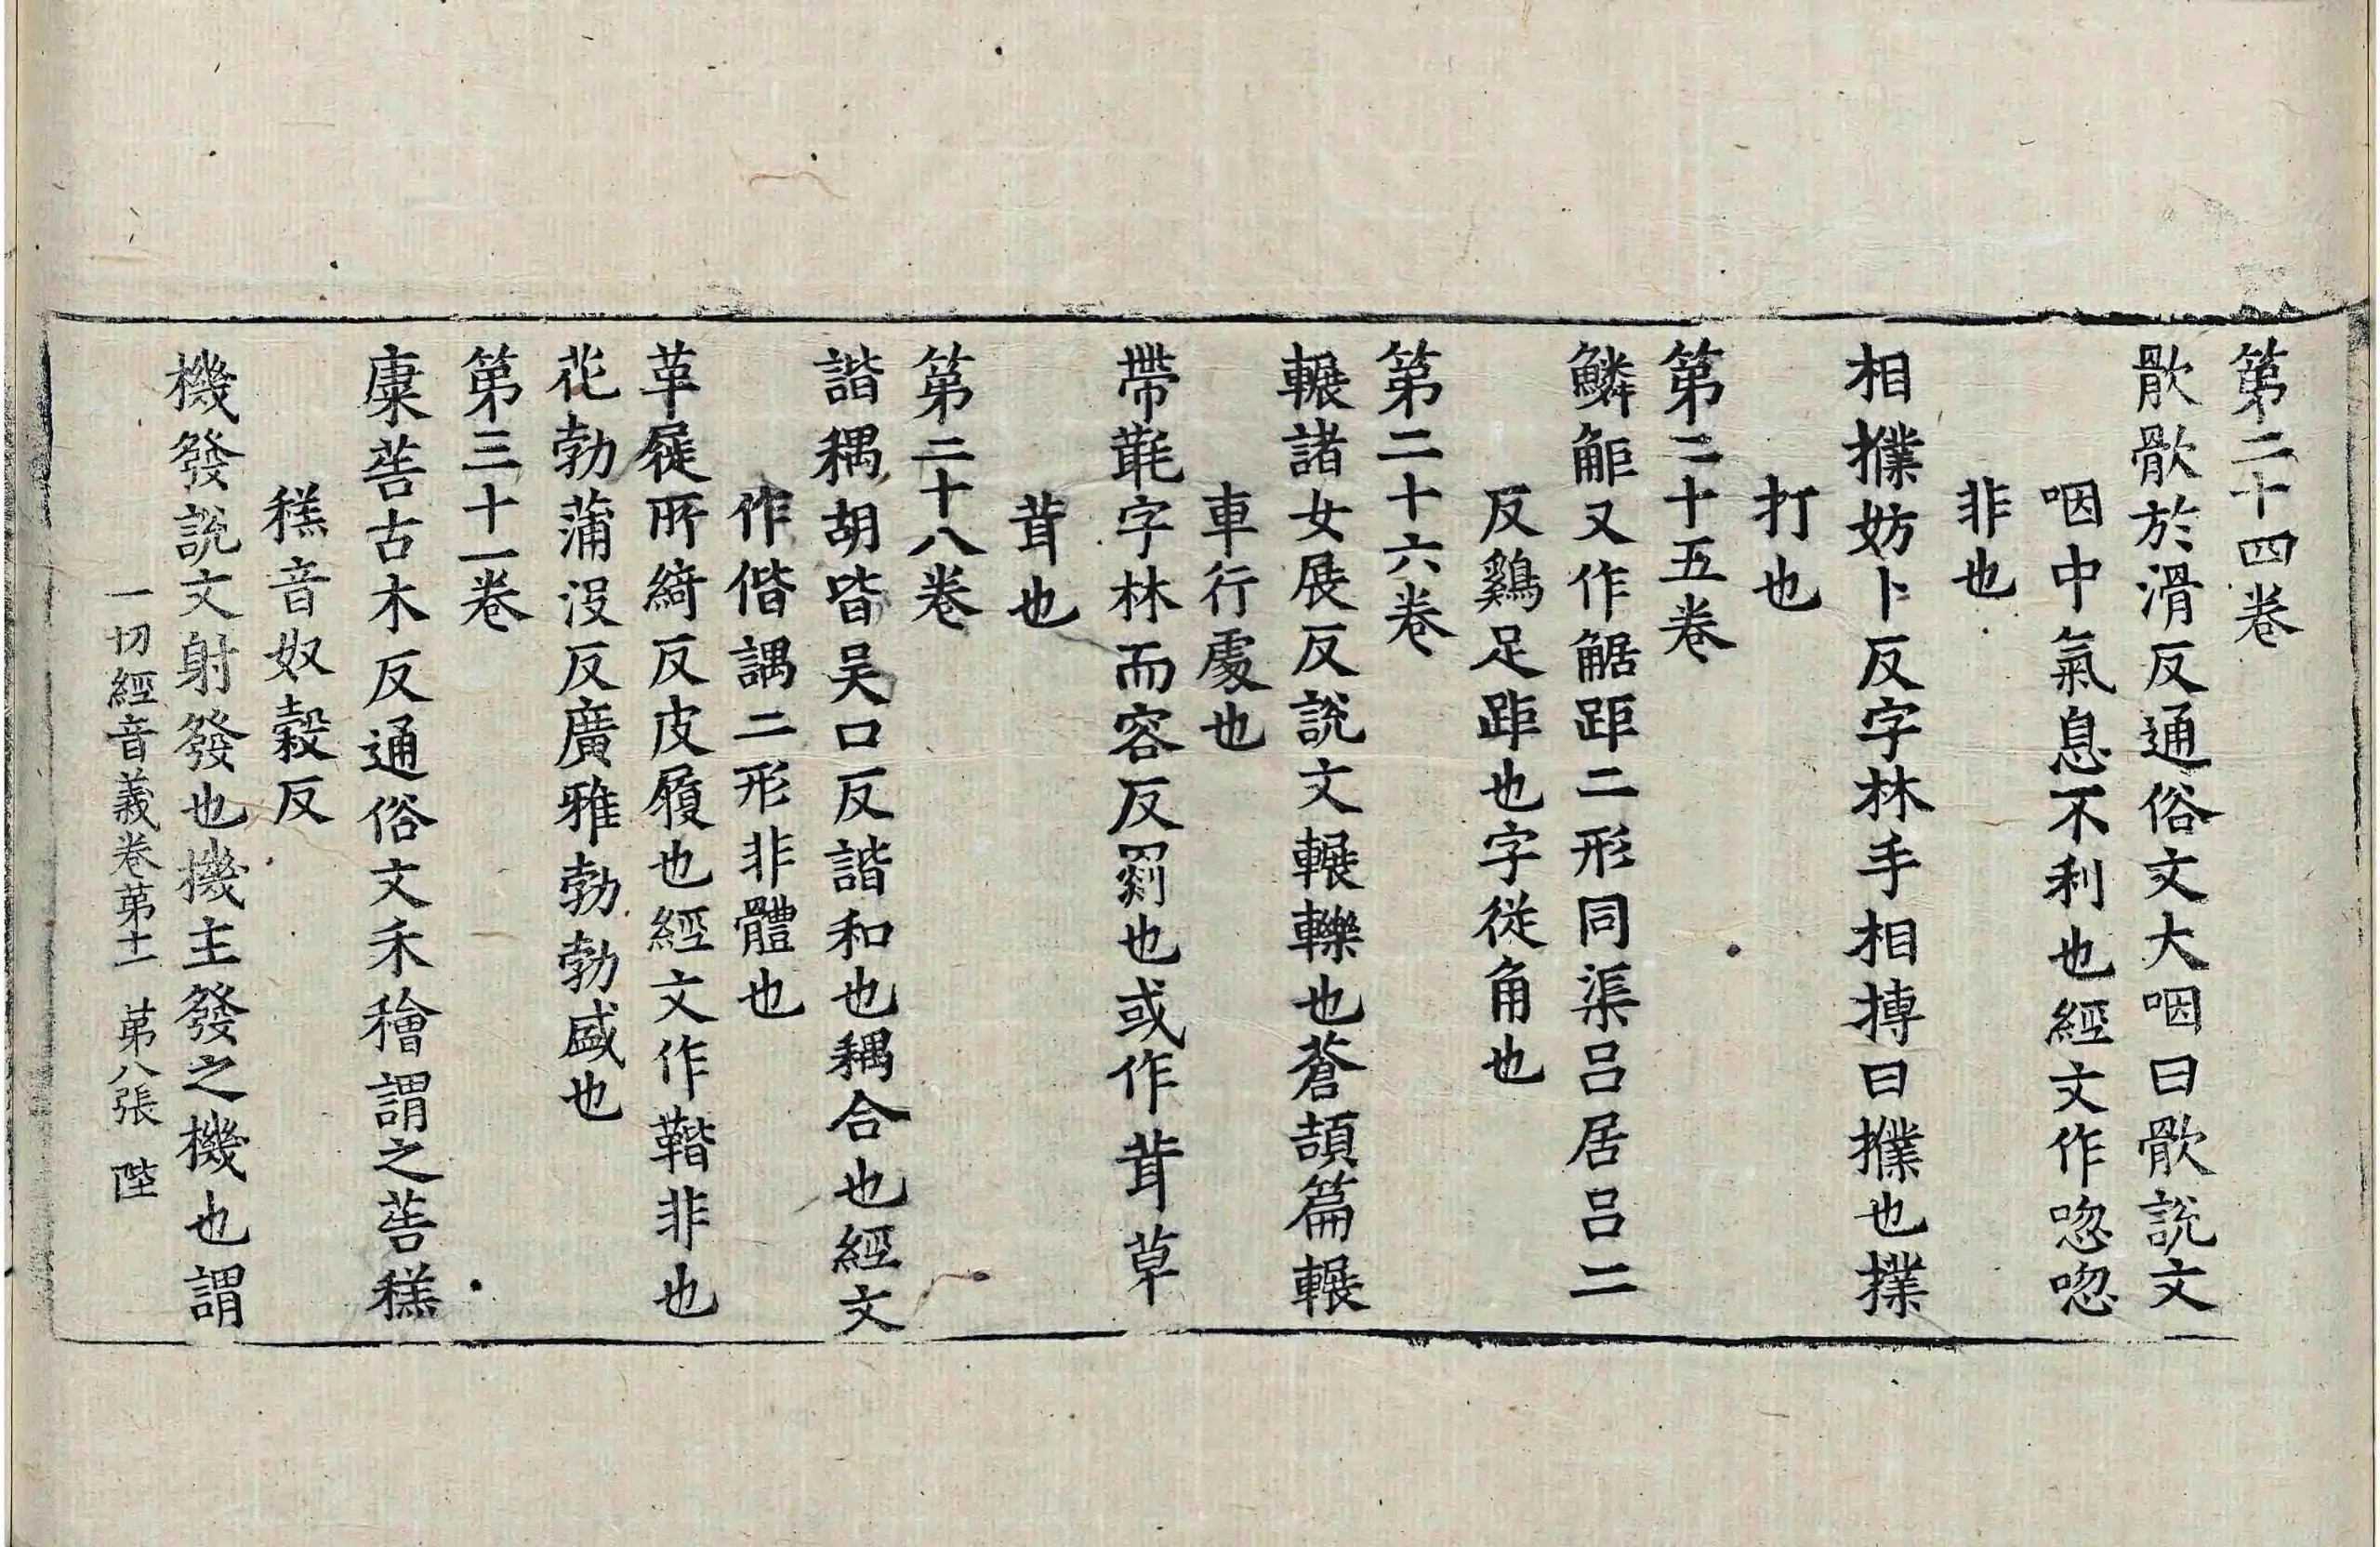 第二十四卷
㱁㱁於滑反通俗文大咽曰㱁說文
咽中氣息不利也經文作唿唿
非也
相撲妨卜反字林手相搏曰撲也撲
打也
第二十五卷
鱗䶙又作䱟距二形同渠呂居呂二
反鷄足距也字從角也
第二十六卷
輾諸女展反說文輾轢也蒼頡篇輾
車行處也
帶㲨字林而容反罽也或作茸草
茸也
第二十八卷
諧耦胡皆吴口反諧和也耦合也經文
作偕諨二形非體也
革屣所綺反皮履也經文作鞜非也
花勃蒲沒反廣雅勃勃盛也
第三十一卷
䆲䓘古木反通俗文禾穭謂之䓘䅵
䅵音奴穀反
機發說文射發也機主發之機也謂
一切經音義卷苐十一　苐八張　陛